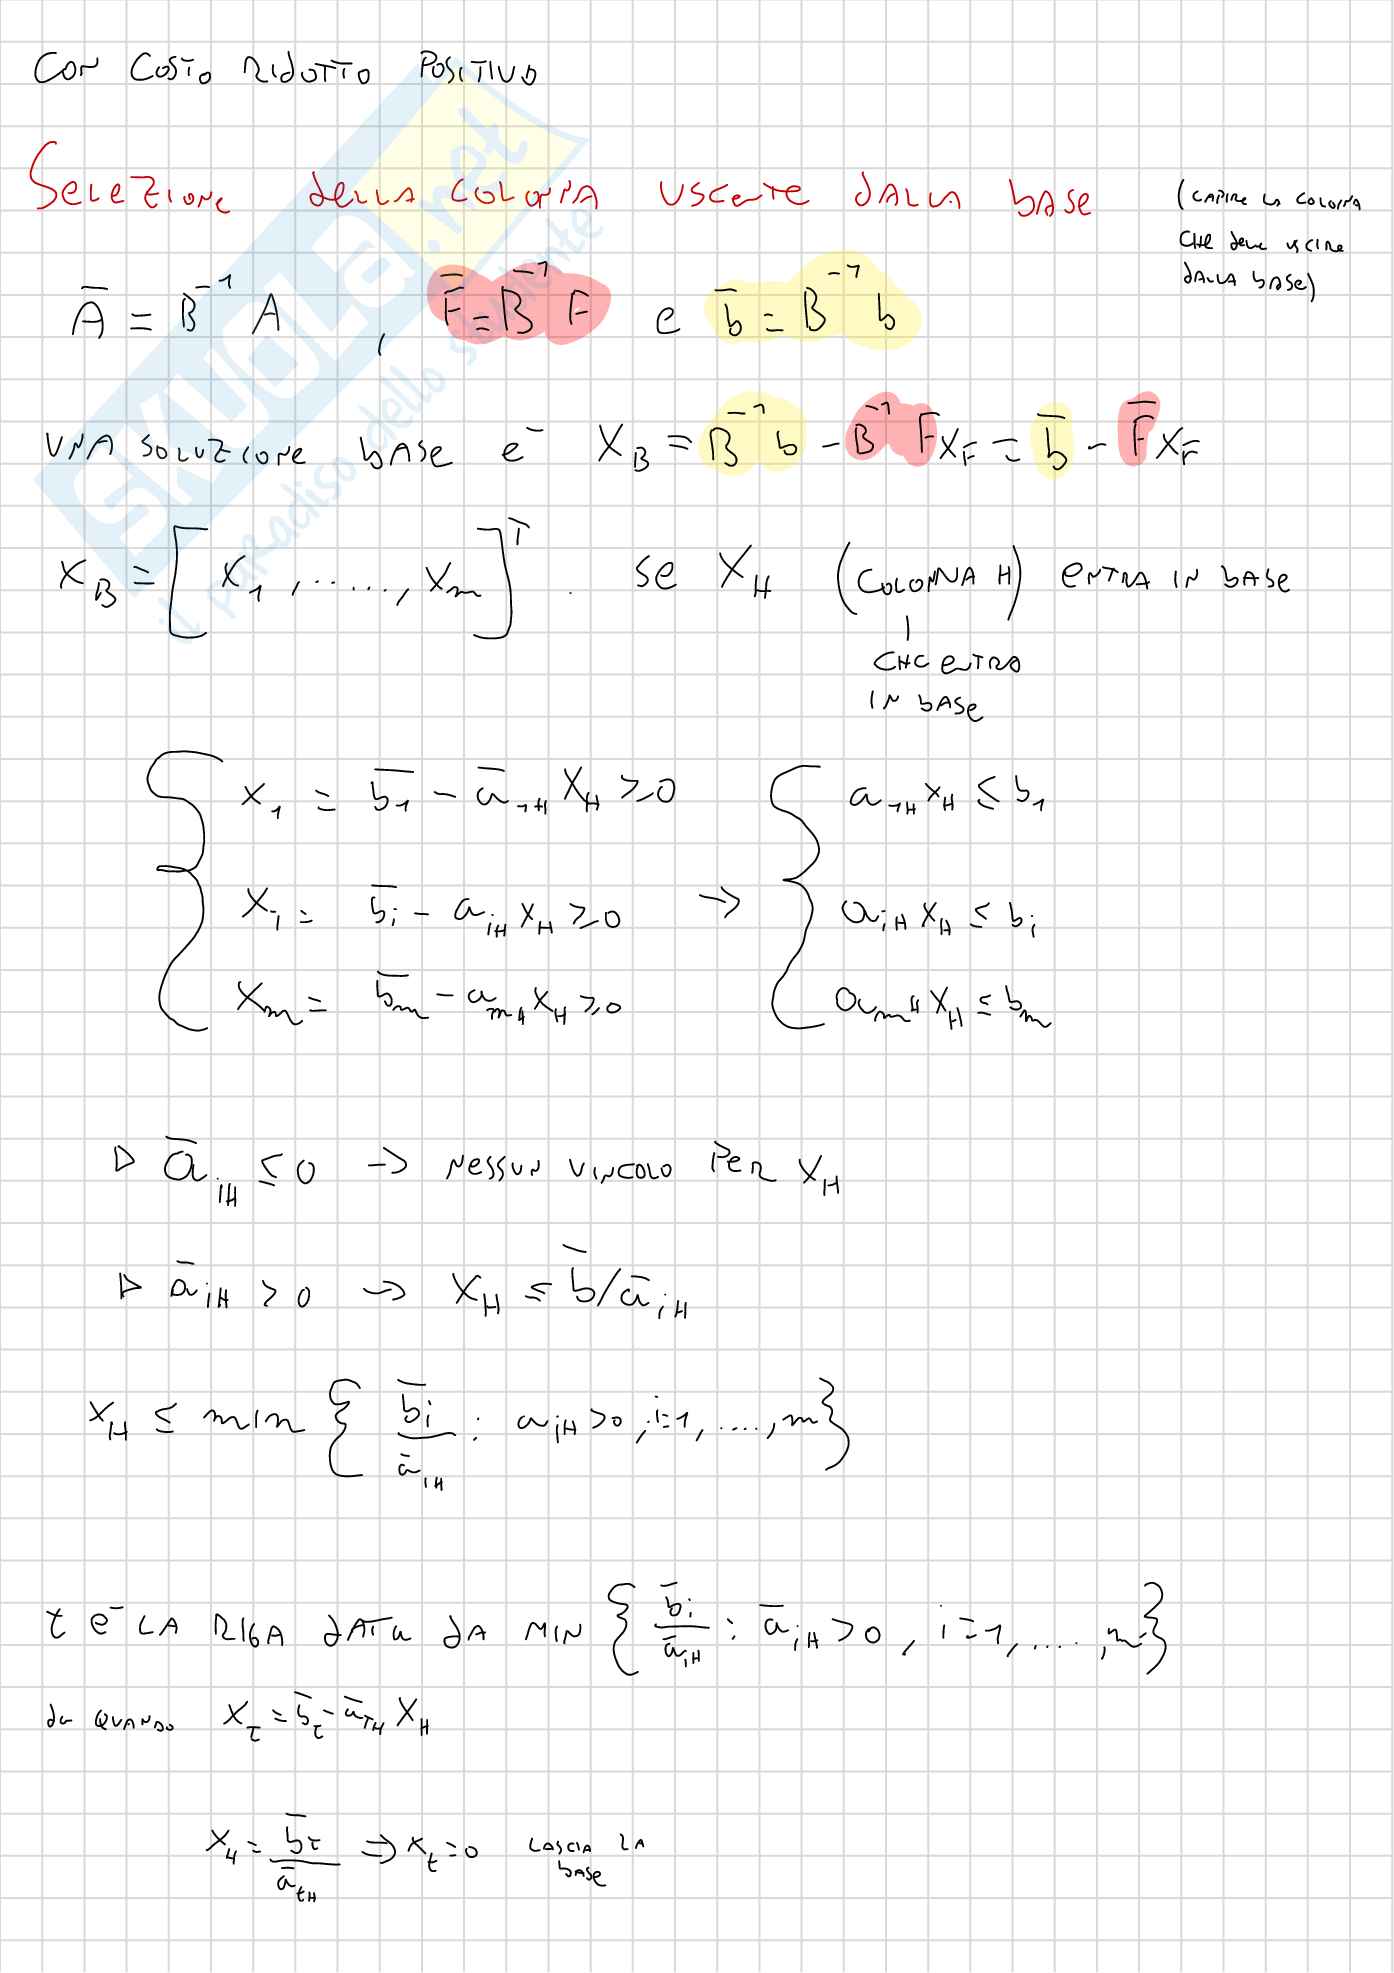 CON COSTO RIDOTTO POSITIVO
SELEZIONE DELLA COLONNA USCENTE DALLA BASE
(CAPIRE LA COLONNA
CHE DEVE USCIRE
DALLA BASE)
A̅ = B⁻¹ A , F̅ = B⁻¹ F e b̅ = B⁻¹ b
UNA SOLUZIONE BASE è X_B = B⁻¹ b - B⁻¹ F X_F = b̅ - F̅ X_F
X_B = [X_1, ......, X_m]^T . SE X_H (COLONNA H) ENTRA IN BASE
CHE ENTRA
IN BASE
X_1 = b̅_1 - a̅_1H X_H ≥ 0 a_1H X_H ≤ b_1
X_i = b̅_i - a_iH X_H ≥ 0 → a_iH X_H ≤ b_i
X_m = b̅_m - a_mH X_H ≥ 0 a_mH X_H ≤ b_m
▷ a̅_iH ≤ 0 → NESSUN VINCOLO PER X_H
▷ a̅_iH > 0 → X_H ≤ b̅/a̅_iH
X_H ≤ min { b̅_i / a̅_iH : a_iH > 0, i=1, ...., m }
t è LA RIGA DATA DA MIN { b̅_i / a̅_iH : a̅_iH > 0, i=1, ...., m }
da QUANDO X_t = b̅_t - a̅_tH X_H
X_H = b̅_t / a̅_tH ⇒ X_t = 0 LASCIA LA
BASE
SKUOLA.net
il paradiso dello studente